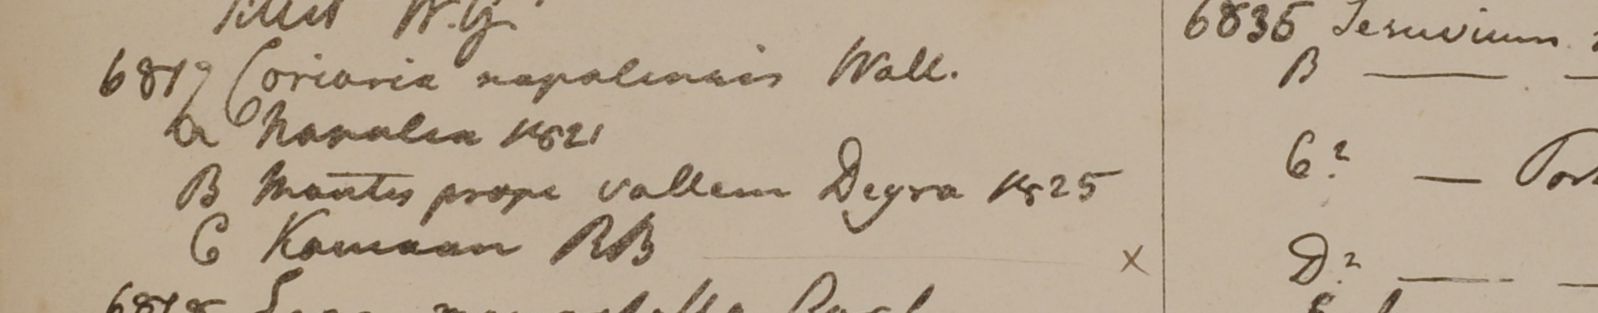 W.G.
6817 Coriaria napalensis Wall.
a Napalia 1821
B Montes prope vallem Deyra 1825
C Kamaon RB
6835 Sesuvium
B
C?
D?